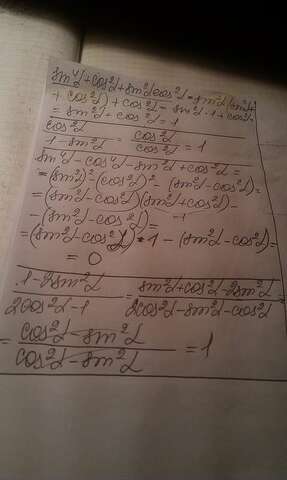 sin⁴α+cos²α+sin²αcos²α=sin²α(sin²α+
+cos²α)+cos²α=sin²α·1+cos²α=
=sin²α+cos²α=1
cos²α/(1-sin²α)=cos²α/cos²α=1
sin⁴α-cos⁴α-sin²α+cos²α=
=(sin²α)²-(cos²α)²-(sin²α-cos²α)=
=(sin²α-cos²α)(sin²α+cos²α)-
-(sin²α-cos²α)=
=(sin²α-cos²α)·1-(sin²α-cos²α)=
=0
(1-2sin²α)/(2cos²α-1)=(sin²α+cos²α-2sin²α)/(2cos²α-sin²α-cos²α)=
=(cos²α-sin²α)/(cos²α-sin²α)=1